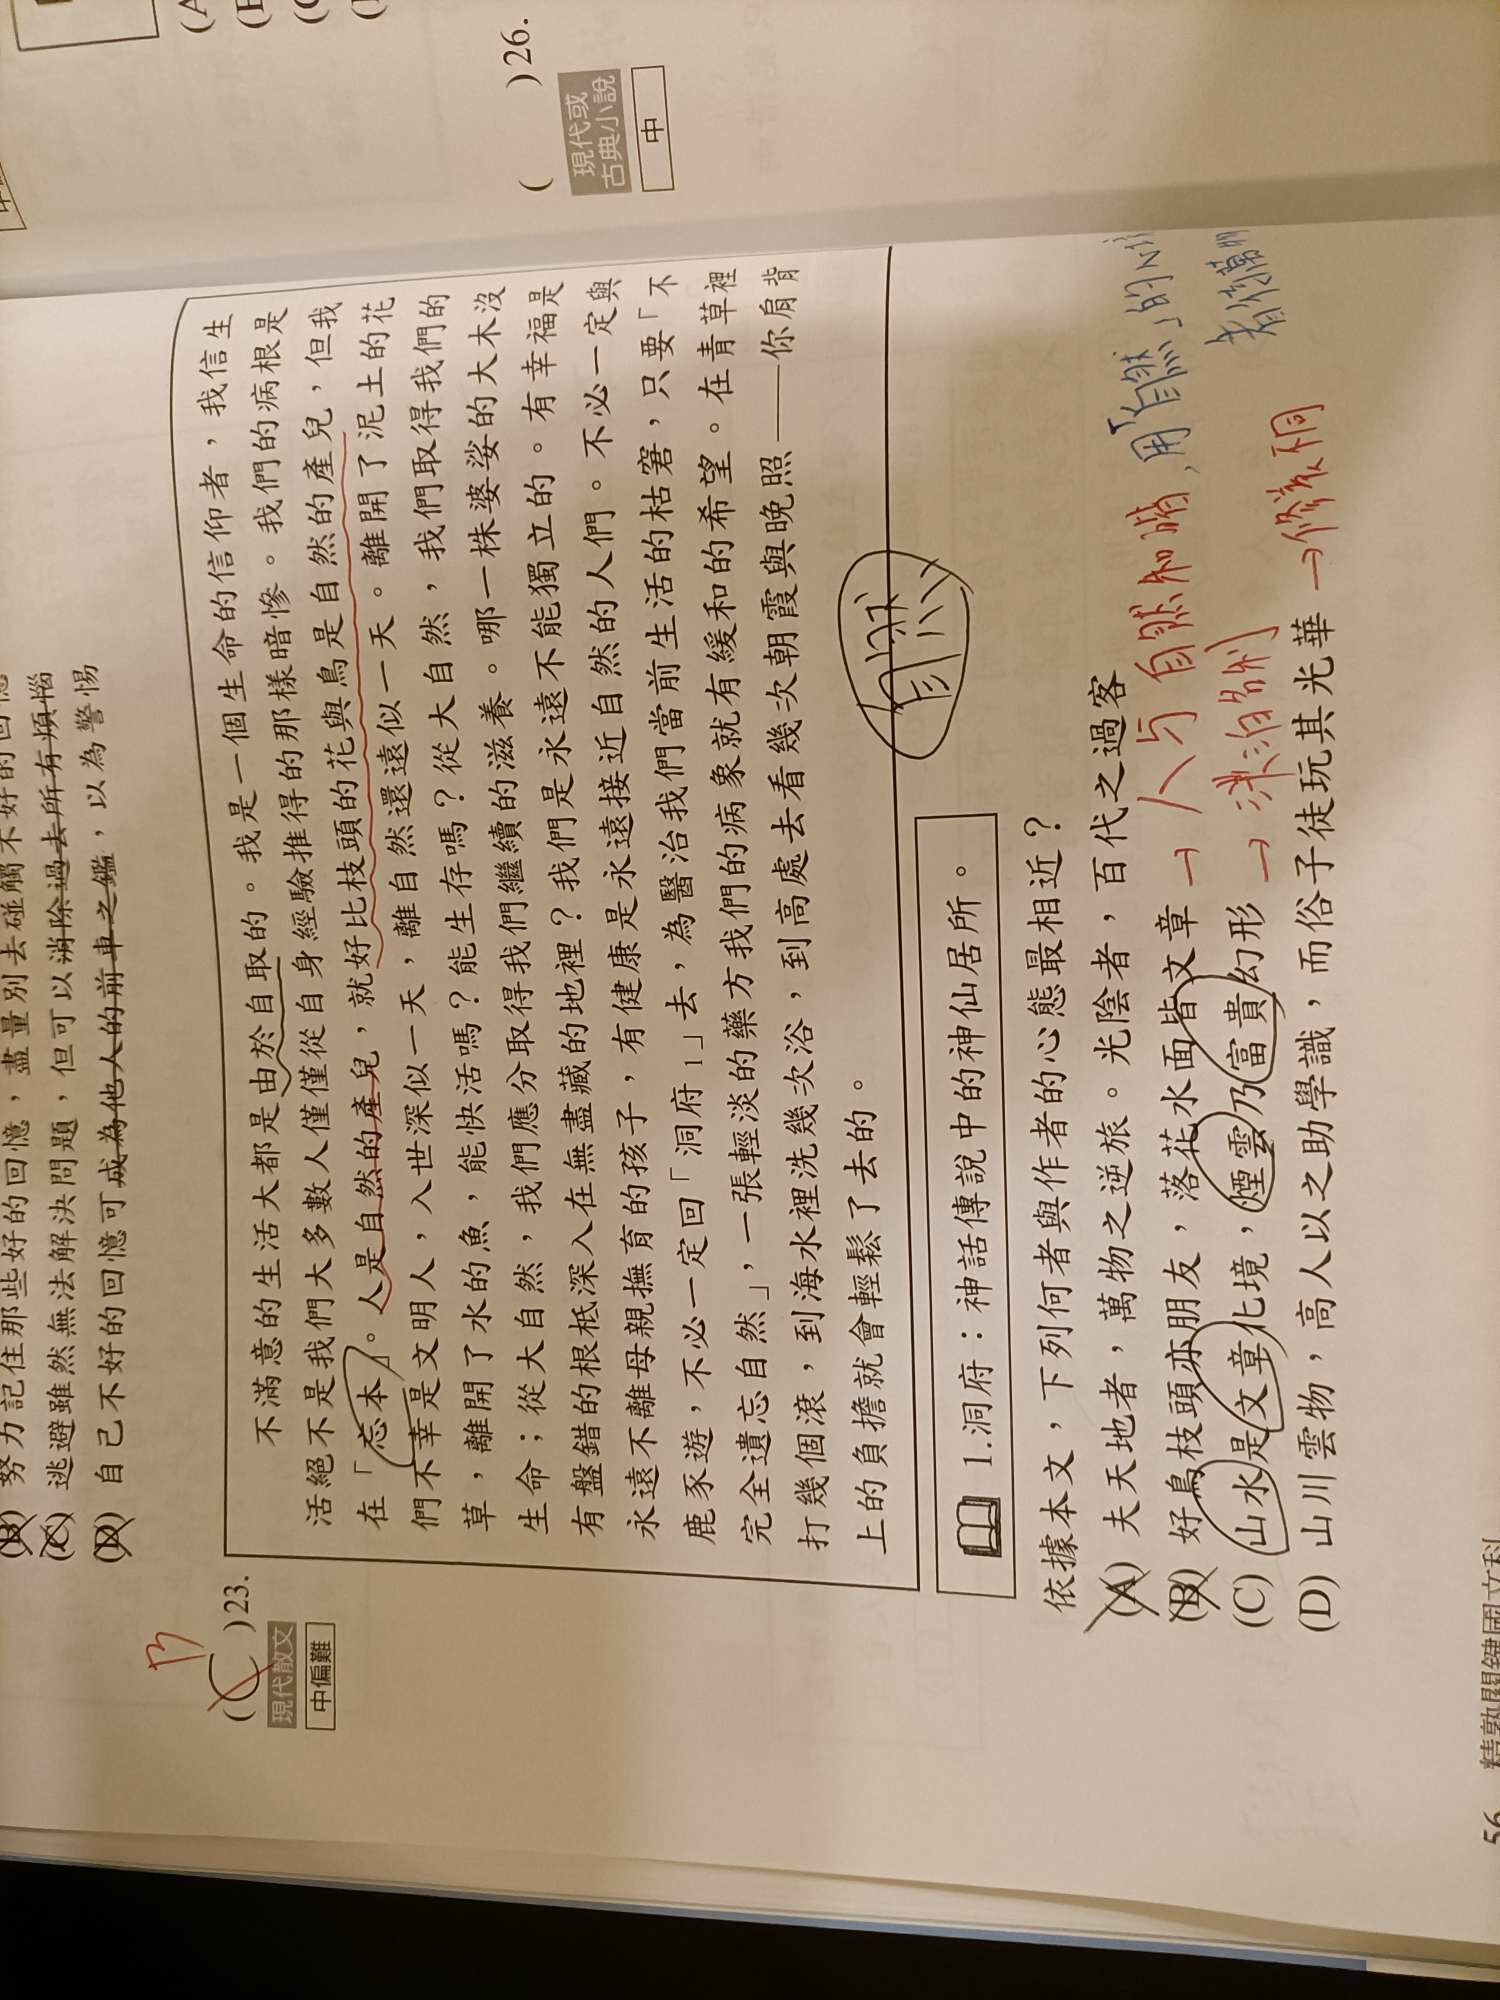 努力記住那些好的回憶，盡量別去碰觸不好的回憶
(C) 逃避雖然無法解決問題，但可以消除過去所有煩惱
(D) 自己不好的回憶可成為他人的前車之鑑，以為警惕
B
(C)23.
現代散文
中偏難
不滿意的生活大都是由於自取的。我是一個生命的信仰者，我信生
活絕不是我們大多數人僅僅從自身經驗推得的那樣暗慘。我們的病根是
在「忘本」。人是自然的產兒，就好比枝頭的花與鳥是自然的產兒，但我
們不幸是文明人，入世深似一天，離自然還遠似一天。離開了泥土的花
草，離開了水的魚，能快活嗎？能生存嗎？從大自然，我們取得我們的
生命；從大自然，我們應分取得我們繼續的滋養。哪一株婆娑的大木沒
有盤錯的根柢深入在無盡藏的地裡？我們是永遠不能獨立的。有幸福是
永遠不離母親撫育的孩子，有健康是永遠接近自然的人們。不必一定與
鹿豕遊，不必一定回「洞府1」去，為醫治我們當前生活的枯窘，只要「不
完全遺忘自然」，一張輕淡的藥方我們的病象就有緩和的希望。在青草裡
打幾個滾，到海水裡洗幾次浴，到高處去看幾次朝霞與晚照——你肩背
上的負擔就會輕鬆了去的。
自然
1.洞府：神話傳說中的神仙居所。
依據本文，下列何者與作者的心態最相近？
(A) 夫天地者，萬物之逆旅。光陰者，百代之過客
(B) 好鳥枝頭亦朋友，落花水面皆文章 → 人与自然和諧，用「自然」的心境
(C) 山水是文章化境，煙雲乃富貴幻形 → 淡泊名利
(D) 山川雲物，高人以之助學識，而俗子徒玩其光華 → 修養不同
56 精熟關鍵國文科
(        )26.
現代或
古典小說
中